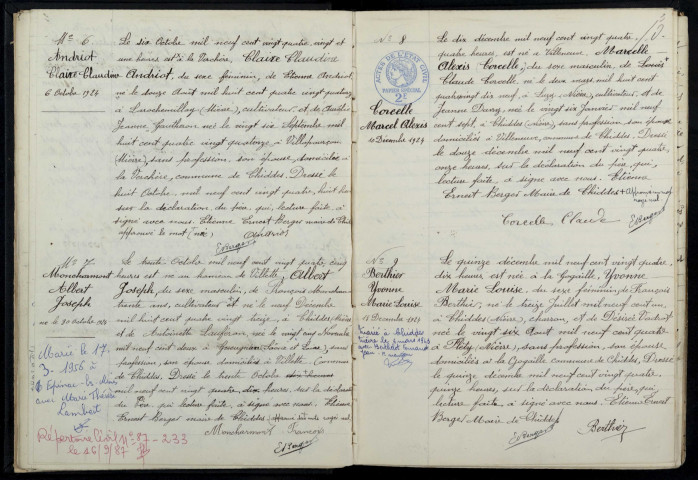 N° 6
Andriot
Claire Claudine
6 Octobre 1924
Le six Octobre mil neuf cent vingt quatre, vingt et
un heures est née à la Verchère, Claire Claudine
Andriot, du sexe féminin, de Etienne Andriot,
né le douze Août mil huit cent quatre vingt
à Larochemillay (Nièvre), cultivateur, et de
Jeanne Gauthron née le vingt six Septembre mil
huit cent quatre vingt quatorze à Villapourçon
(Nièvre), sans profession, son épouse, domiciliés à
la Verchère, commune de Chiddes. Dressé le huit
Octobre mil neuf cent vingt quatre, huit heures
sur la déclaration du père, qui, lecture faite, a
signé avec nous, Etienne Ernest Berger maire de Chiddes
approuvé le mot (née)
Andriot
N° 7
Monchamont
Albert
Joseph
né le 30 octobre 1924
Marié le 17
3. 1956 à
Epinac-les-Mines
avec Marie Thérèse
Lambert
Répertoire Civil N° 87-233
le 16/9/87
Le trente Octobre mil neuf cent vingt quatre cinq
heures est né au hameau de Villette, Albert
Joseph, du sexe masculin, de François Monchamont
trente ans, cultivateur, né le neuf Décembre
mil huit cent quatre vingt treize, à Chiddes (Nièvre)
et de Antoinette née le vingt cinq Novembre
mil neuf cent deux à Gueugnon (Saône et Loire), sans
profession, son épouse domiciliés à Villette Commune
de Chiddes. Dressé le trente Octobre
mil neuf cent vingt quatre dix heures, sur la déclaration
du Père qui lecture faite, a signé avec nous, Etienne
Ernest Berger maire de Chiddes.
Monchamont François
N° 8
ACTES DE L'ÉTAT CIVIL
PAPIER SPÉCIAL
2F
Corcelle
Marcel Alexis
10 Décembre 1924
Le dix décembre mil neuf cent vingt quatre
quatre heures, est né à Villeneuve, Marcelle
Alexis Corcelle, du sexe masculin, de
Claude Corcelle, né le deux mars, mil huit cent
quatrevingt dix neuf, à Luzy, Nièvre, cultivateur, et de
Jeanne née le vingt six Janvier mil neuf
cent sept, à Chiddes (Nièvre), sans profession, son épouse
domiciliés à Villeneuve, commune de Chiddes. Dressé
le douze décembre mil neuf cent vingt quatre,
onze heures, sur la déclaration du père, qui,
lecture faite, a signé avec nous, Etienne
Ernest Berger Maire de Chiddes
Corcelle Claude
N° 9
Berthier
Yvonne
Marie Louise
15 Décembre 1924
Le quinze décembre mil neuf cent vingt quatre
dix heures est née à la Gogaille, Yvonne
Marie Louise, du sexe féminin, de François
Berthier, né le treize Juillet mil neuf cent un
à Chiddes (Nièvre), charron, et de Désirée
née le vingt six Août mil neuf cent quatre
à Poil (Nièvre), sans profession, son épouse
domiciliés à la Gogaille commune de Chiddes. Dressé
le quinze décembre mil neuf cent vingt quatre,
quinze heures, sur la déclaration du père, qui,
lecture faite, a signé avec nous. Etienne Ernest
Berger Maire de Chiddes
Berthier